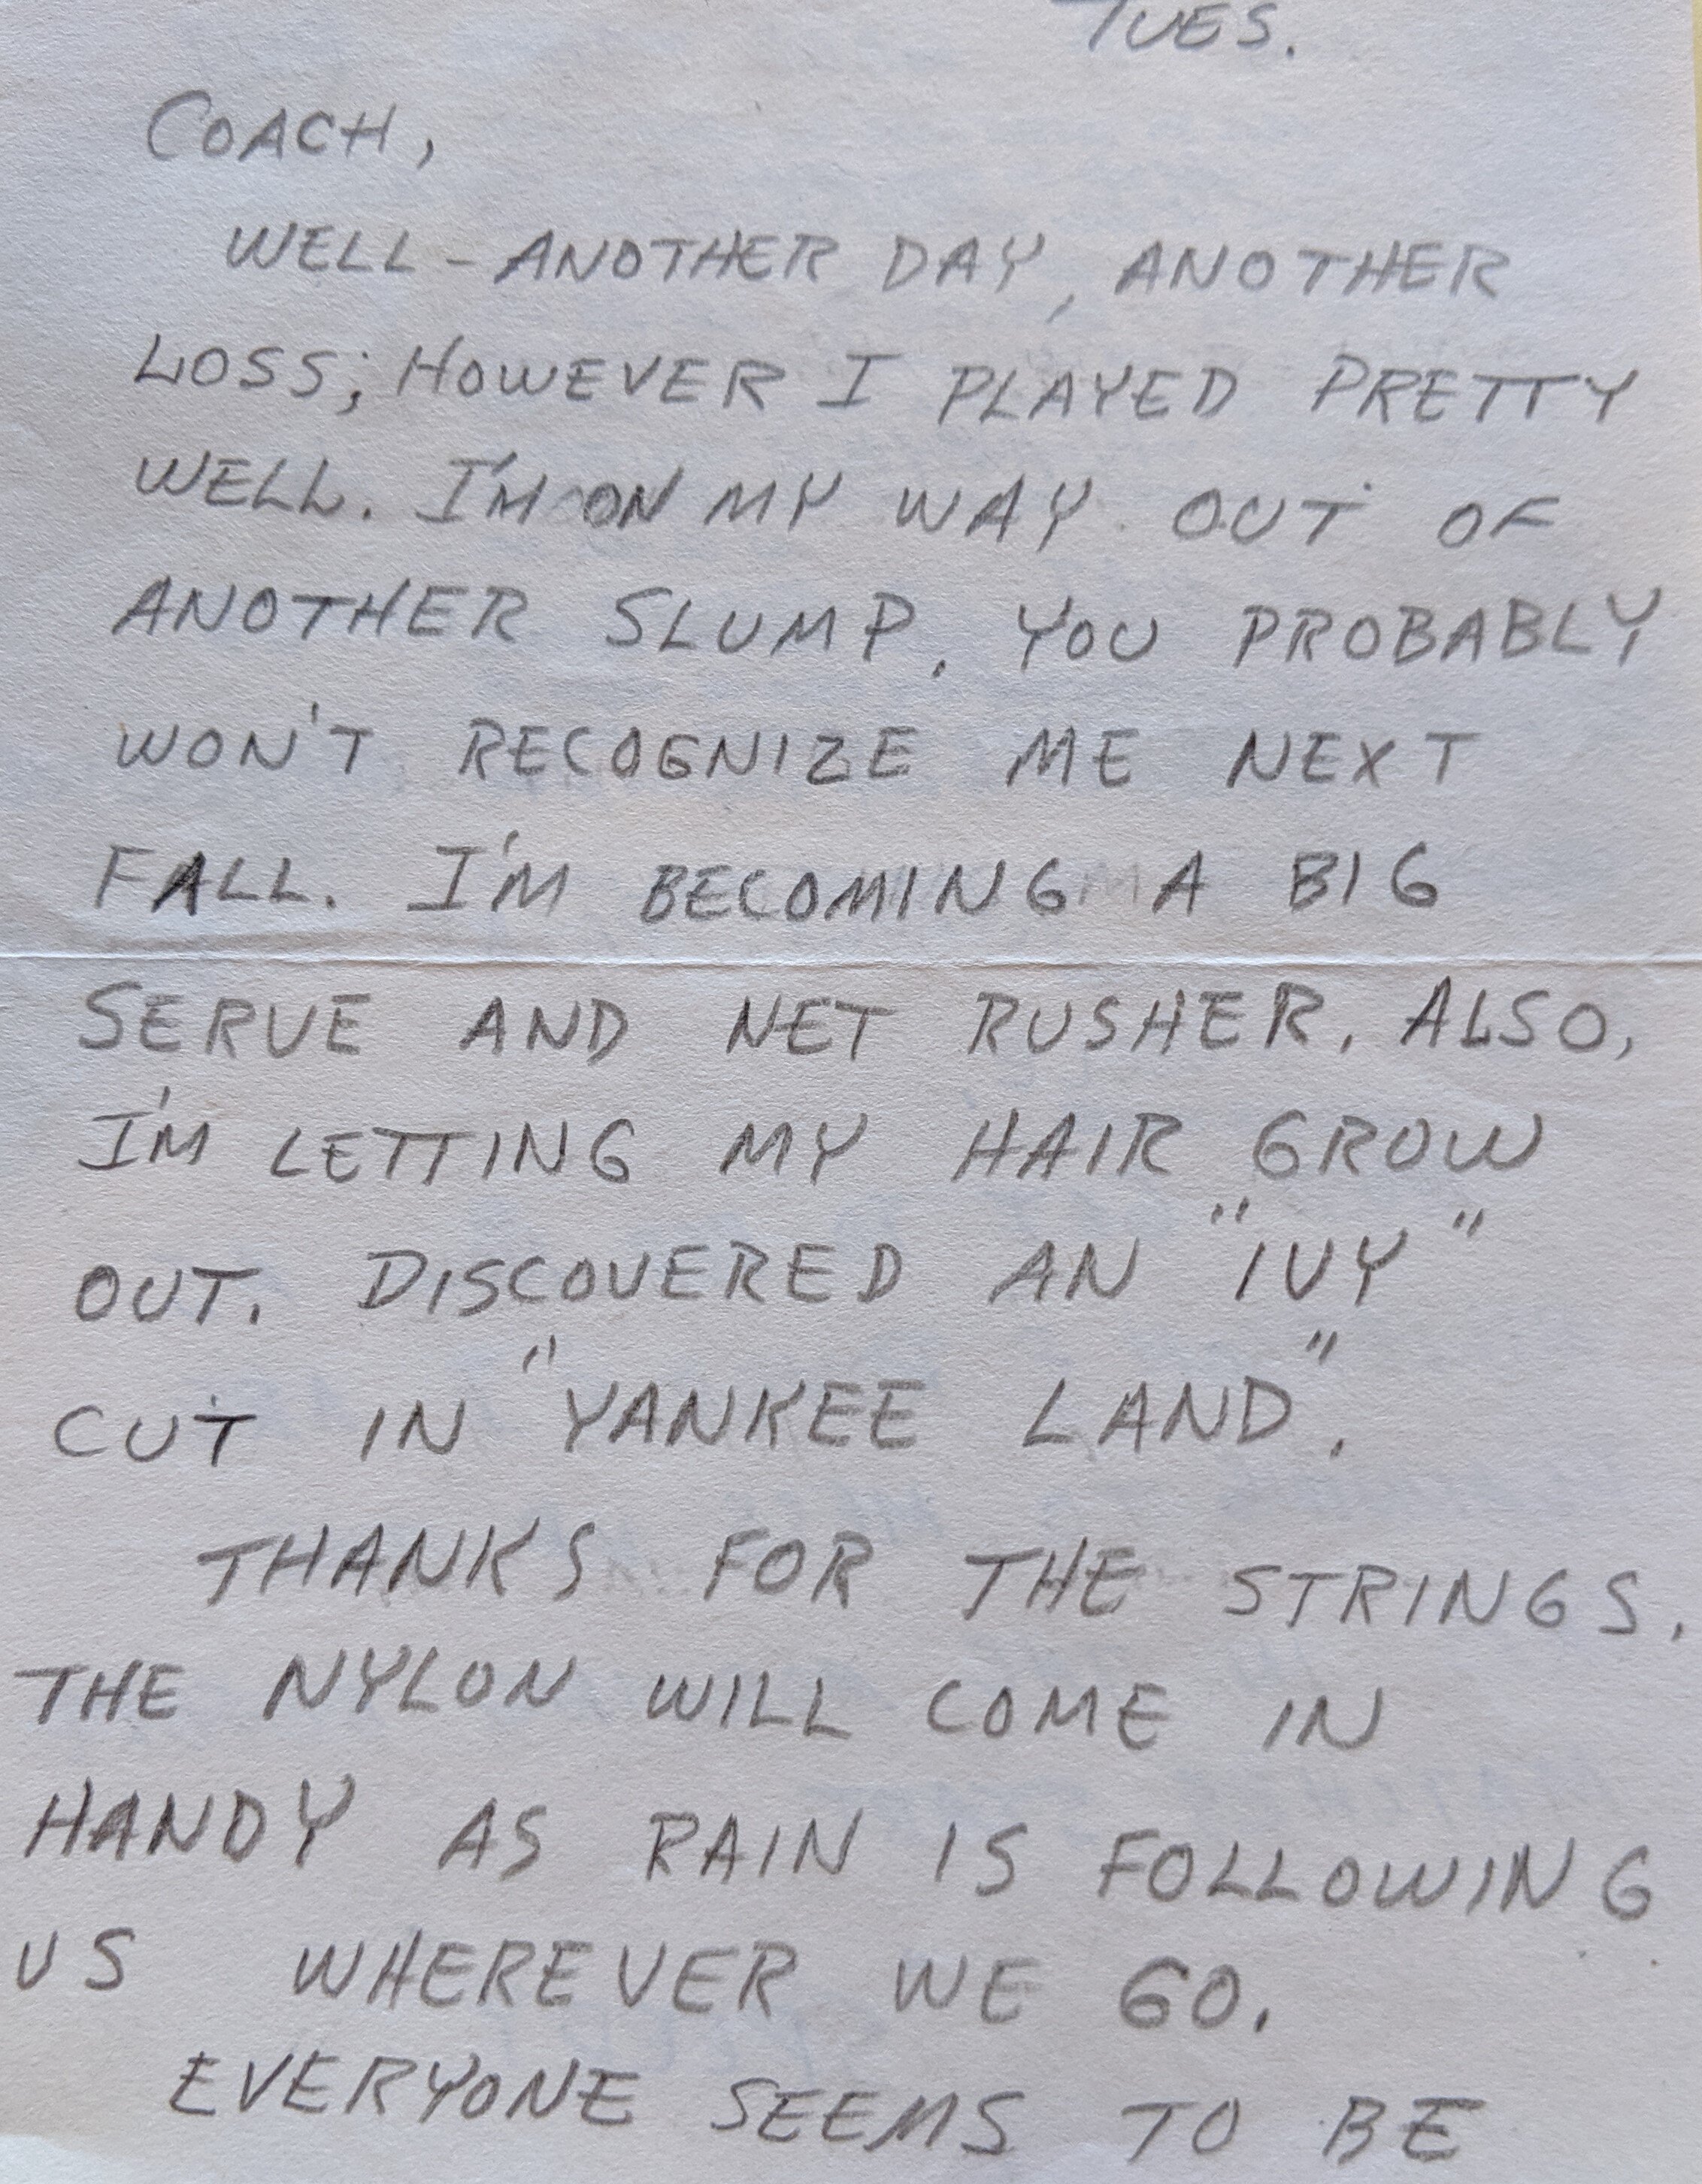 TUES.
COACH,
WELL - ANOTHER DAY, ANOTHER
LOSS; HOWEVER I PLAYED PRETTY
WELL. I'M ON MY WAY OUT OF
ANOTHER SLUMP. YOU PROBABLY
WON'T RECOGNIZE ME NEXT
FALL. I'M BECOMING A BIG
SERVE AND NET RUSHER. ALSO,
I'M LETTING MY HAIR GROW
OUT. DISCOVERED AN "IVY"
CUT IN "YANKEE LAND".
THANKS FOR THE STRINGS.
THE NYLON WILL COME IN
HANDY AS RAIN IS FOLLOWING
US WHEREVER WE GO.
EVERYONE SEEMS TO BE